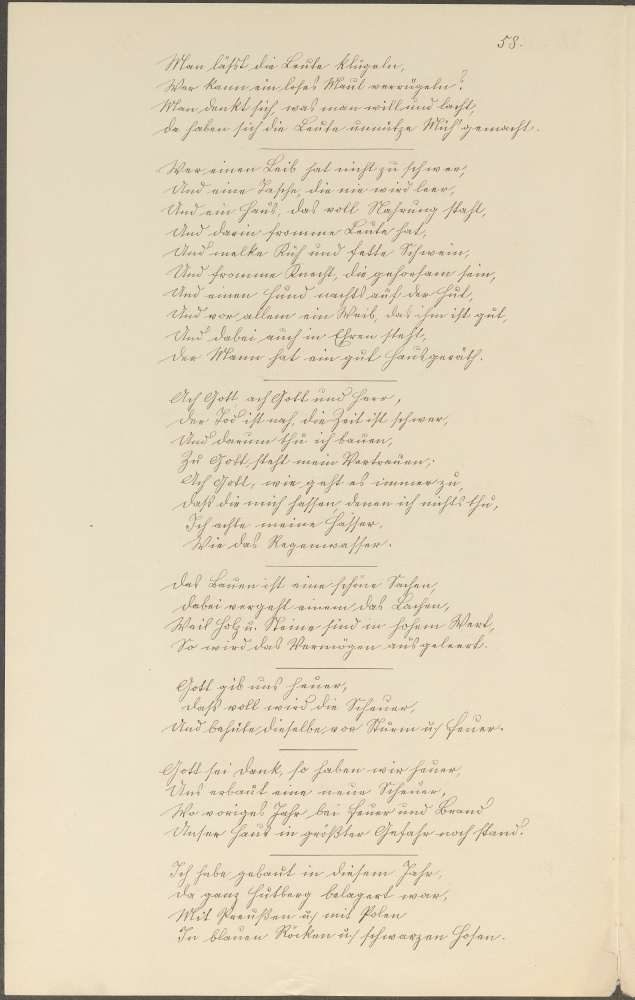 58.
Man läßt die Leute klügeln,
Wer kann ein loses Maul verrügeln?
Man denkt sich was man will und lacht,
da haben sich die Leute unnütze Müh' gemacht.
Wer einen Leib hat nicht zu schwer,
Und eine Tasche, die nie wird leer,
Und ein Haus, das voll Nahrung staht,
Und darin fromme Leute hat,
Und melke Küh und fette Schwein,
Und fromme Knecht, die gehorsam sein,
Und einen Hund nachts auf der Hut,
Und vor allem ein Weib, das ihm ist gut,
Und dabei auch in Ehren steht,
Der Mann hat ein gut Hausgeräth.
Ach Gott ach Gott und Herr,
der Tod ist nah, die Zeit ist schwer,
Und darum thu ich bauen,
Zu Gott steht mein Vertrauen;
Ach Gott, wie geht es immer zu,
daß die mich hassen denen ich nichts thu,
Ich achte meine Hasser,
Wie das Regenwasser.
Das Bauen ist eine schöne Sachen,
dabei vergeht einem das Lachen,
Weil Holz u. Steine sind in hohem Wert,
So wird das Vermögen ausgeleert.
Gott gib uns heuer,
daß voll wird die Scheuer,
Und behüte dieselbe vor Sturm u/ Feuer.
Gott sei Dank, so haben wir heuer,
Uns erbaut eine neue Scheuer,
Wo voriges Jahr bei Feuer und Brand
Unser Haus in größter Gefahr noch stand.
Ich habe gebaut in diesem Jahr,
da ganz Hutberg belagert war,
Mit Preußen u/ mit Polen
In blauen Röcken u/ schwarzen Hosen.